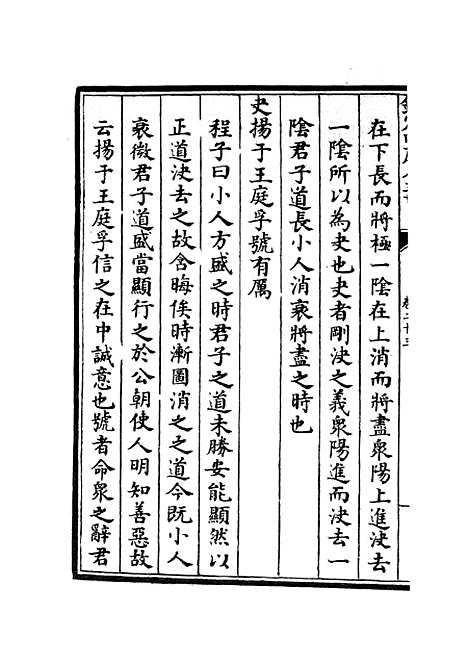 在下長而將極一陰在上消而將盡衆陽上進決去
一陰所以為夬也夬者剛決之義衆陽進而決去一
陰君子道長小人消衰將盡之時也
夬揚于王庭孚號有厲
程子曰小人方盛之時君子之道未勝安能顯然以
正道決去之故含晦俟時漸圖消之之道今既小人
衰微君子道盛當顯行之於公朝使人明知善惡故
云揚于王庭孚信之在中誠意也號者命衆之辭君